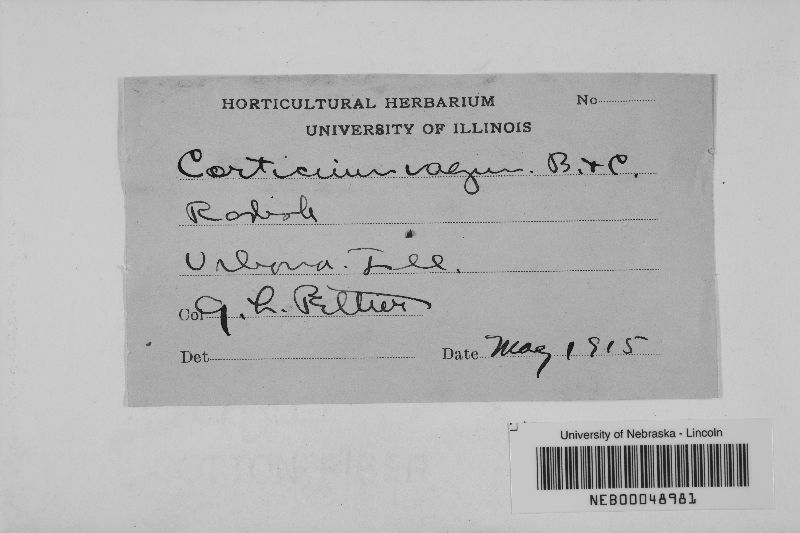 HORTICULTURAL HERBARIUM No
UNIVERSITY OF ILLINOIS
Corticium vagum. B. & C.
Radish
Urbana. Ill.
Col G. L. Peltier
Det Date May 1915
University of Nebraska - Lincoln
NEB00048981